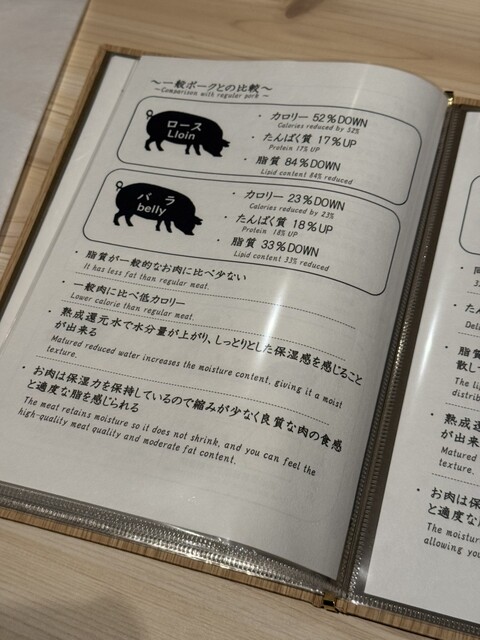 ～一般ポークとの比較～
～Comparison with regular pork～
ロース
Lloin
・ カロリー 52%DOWN
Calories reduced by 52%
・ たんぱく質 17%UP
Protein 17% UP
・ 脂質 84%DOWN
Lipid content 84% reduced
バラ
belly
・ カロリー 23%DOWN
Calories reduced by 23%
・ たんぱく質 18%UP
Protein 18% UP
・ 脂質 33%DOWN
Lipid content 33% reduced
・ 脂質が一般的なお肉に比べ少ない
It has less fat than regular meat.
・ 一般肉に比べ低カロリー
Lower calorie than regular meat.
・ 熟成還元水で水分量が上がり、しっとりとした保湿感を感じること
が出来る
Matured reduced water increases the moisture content, giving it a moist
texture.
・ お肉は保湿力を保持しているので縮みが少なく良質な肉の食感
と適度な脂を感じられる
The meat retains moisture so it does not shrink, and you can feel the
high-quality meat quality and moderate fat content.
・ たん
・ 脂質
散し
The li
distrib
・ 熟成還
が出来
Matured
texture.
・ お肉は保
と適度な
The moistur
allowing you